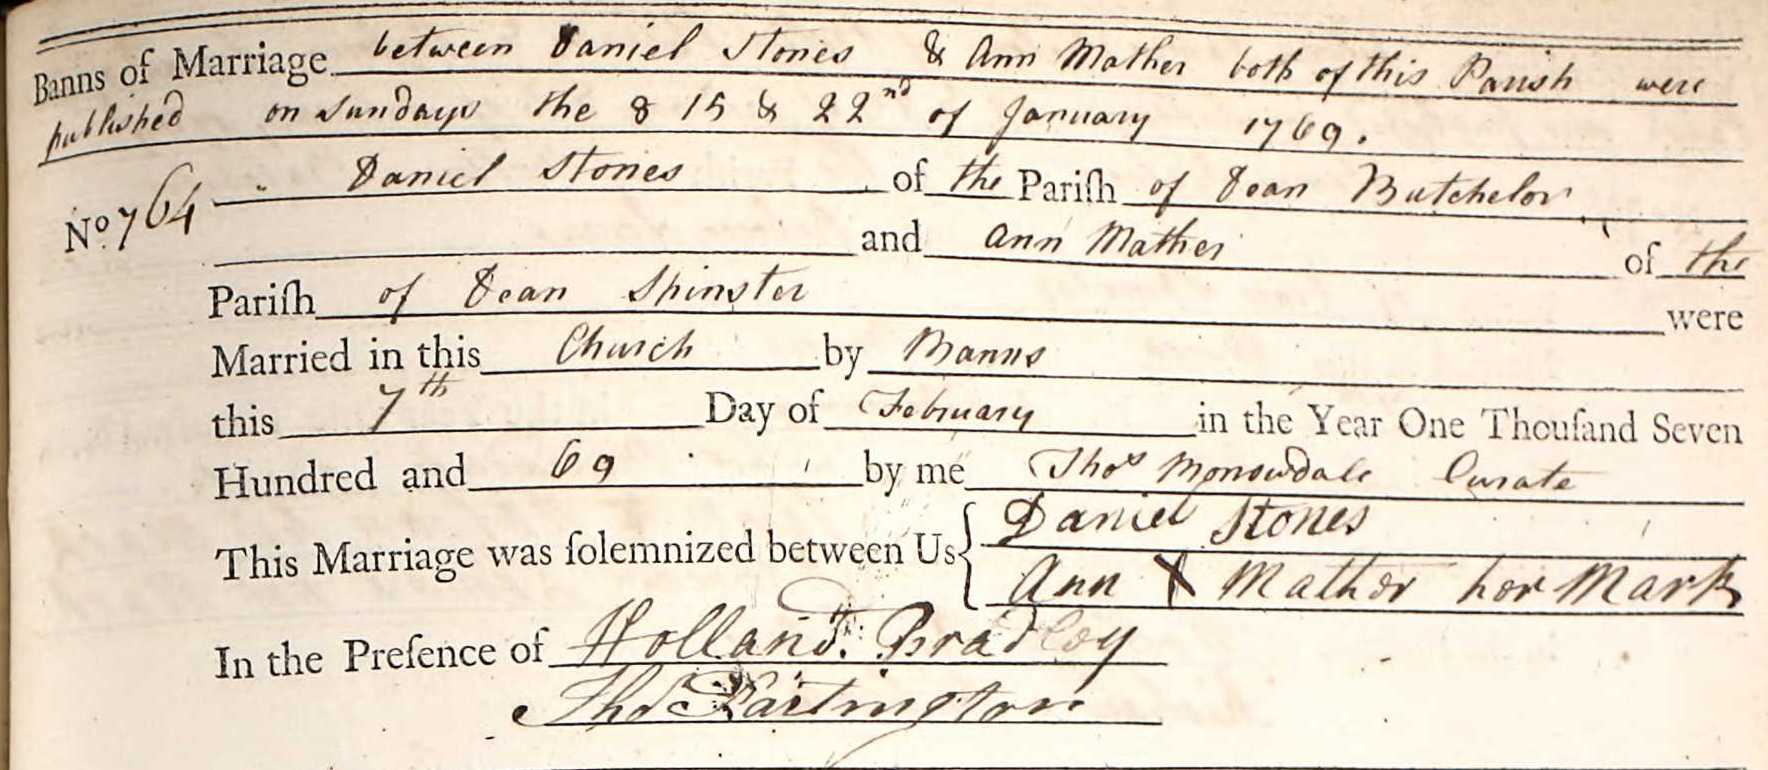 Banns of Marriage between Daniel Stones & Ann Mather both of this Parish were
published on Sundays the 8 15 & 22nd of January 1769.
No. 764 Daniel Stones of the Pariſh of Dean Batchelor
and Ann Mather of the
Pariſh of Dean Spinster were
Married in this Church by Banns
this 7th Day of February in the Year One Thouſand Seven
Hundred and 69 by me Thos Curate
This Marriage was ſolemnized between Us Daniel Stones
Ann X Mather her Mark
In the Preſence of Holland Bradley
Thos Partington